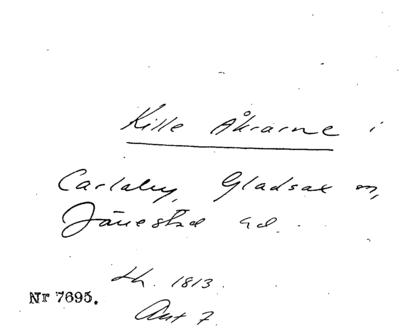 Kille Åkrarne i
Carlaby, Gladsax sn,
Järrestad hd.
th. 1813.
Akt 7
Nr 7695.